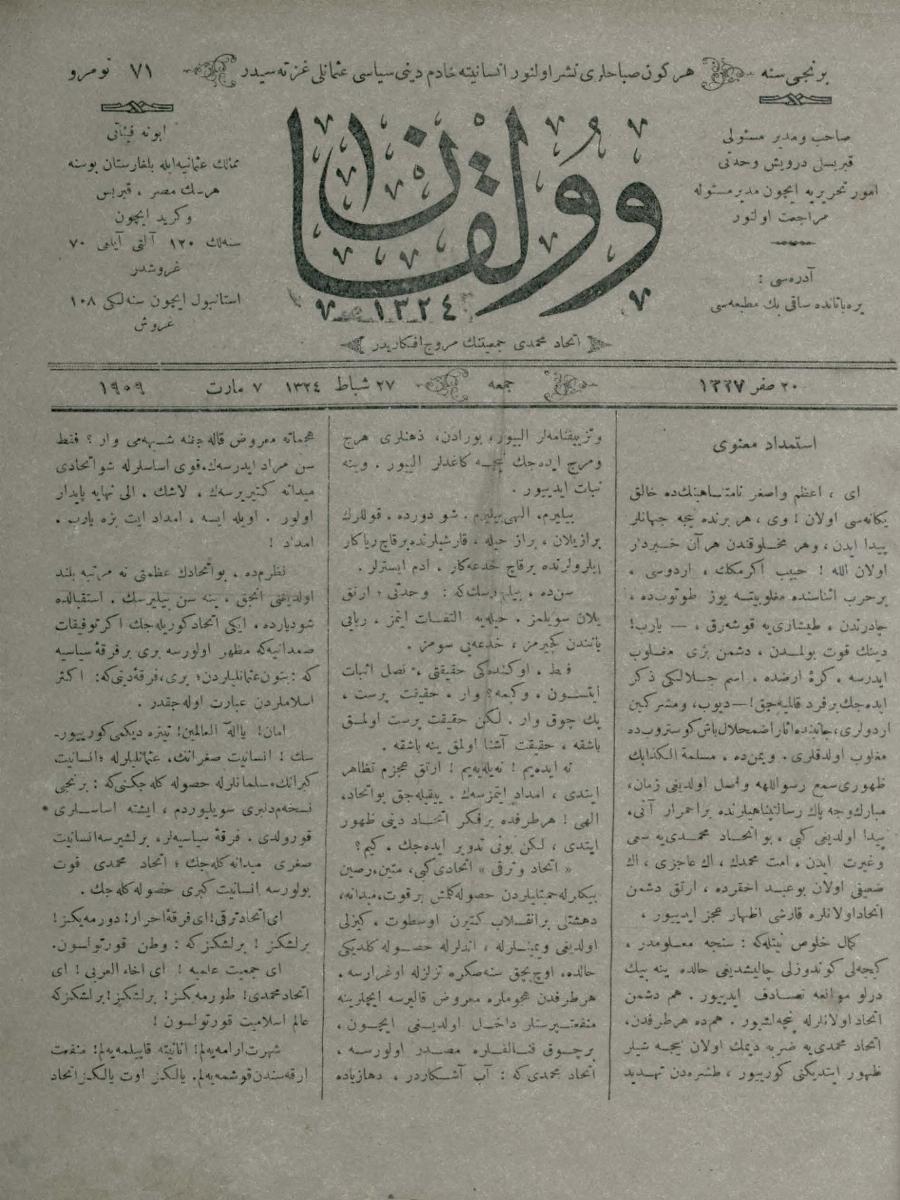 برنجی سنه
هر كون صباحلری نشر اولنور انسانیته خادم دینی سیاسی عثمانلی غزته سیدر
۷۱ نومرو
صاحب و مدیر مسئولی
قبریسلی درویش وحدتی
امور تحریریه ایچون مدیر مسئوله
مراجعت اولنور
آدره‌سی :
یره‌باتانده ساقی بك مطبعه‌سی
وولقان
۱۳۲٤
اتحاد محمدی جمعیتنك مروج افكاریدر
ابونه فیئاتی
ممالك عثمانیه ایله بلغارستان بوسنه
هرسك مصر ، قبریس
و كرید ایچون
سنه‌لك ۱۲۰ آلتی آیلغی ۷۰
غروشدر
استانبول ایچون سنه‌لكی ۱۰۸
غروش
۲۰ صفر ۱۳۲۷
جمعه
۲۷ شباط ۱۳۲٤
۷ مارت ۱۹۰۹
استمداد معنوی
ای ، اعظم و اصغر نامتناهینك‌ده خالق
یكانه‌سی اولان ! وی ، هر برنده نیجه جهانلر
پیدا ایدن ، و هر مخلوقندن هر آن خبردار
اولان الله ! حبیب اكرمكك ، اردوسی ،
بر حرب اثناسنده مغلوبیته یوز طوتوب‌ده ،
چادرندن ، طیشاری‌یه قوشه‌رق ، — یارب!
دینك قوت بولمدن ، دشمن بزی مغلوب
ایدرسه ، كرۀ ارضده ، اسم جلالكی ذكر
ایده‌جك بر فرد قالمیه‌جق!—دیوب، ومشركین
اردولری، جاننده آثار اضمحلال باش كوستروب‌ده
مغلوب اولدقلری ، ویمن‌ده ، مسلمة الكذابك
ظهوری سمع رسول‌اللهه واصل اولدیغی زمان،
مبارك وجه پاك رسالتپناهیلرنده بر احمرار آنی،
پیدا اولدیغی كبی ، بو اتحاد محمدی‌یه سعی
و غیرت ایدن ، امت محمدك ، اك عاجزی ، اك
ضعیفی اولان بو عبد احقرده ، ارتق دشمن
اتحاد اولانلره قارشی اظهار عجز ایدییور ،
كمال خلوص نیتله‌كه : سنجه معلومدر ،
كیجه‌لی كوندوزلی چالیشدیغی حالده ینه بیك
درلو موانعه تصادف ایدییور . هم دشمن
اتحاد اولانلرله پنچه‌لشیور . هم‌ده هر طرفدن،
اتحاد محمدی‌یه ضربه دیمك اولان نیجه شیلر
ظهور ایتدیكنی كورییور ، طشره‌دن تهدید
و تزییفنامه‌لر الییور، بورادن، ذهنلری هرج
و مرج ایده‌جك نیجه كاغدلر الییور . وینه
ثبات ایدییور .
بیلیرم، الهی بیلیرم . شو دوره‌ده ، قوللرك
برازیلان ، براز حیله ، قارشیلرنده بر قاچ ریاكار
ایلرولرنده بر قاچ خدعه‌كار ، ادم ایسترلر .
سن‌ده ، بیلیورسك‌كه : وحدتی ؛ ارتق
یلان سویلمز . حیله‌یه التفات ایتمز . ریایی
یانندن كچیرمز ، خدعه‌یی سومز .
فقط ، اوكنده‌كی حقیقتی ، نصل اثبات
ایتسون ، و كیمه؟ وار ، حقیقت پرست ،
پك چوق وار . لكن حقیقت پرست اولمق
باشقه ، حقیقت آشنا اولمق ینه باشقه .
نه ایده‌یم ! نه‌یاپه‌یم ! ارتق عجزم تظاهر
ایتدی ، امداد ایتمزسه‌ك . ییقیله‌جق بو اتحاد،
الهی ! هر طرفده بر فكر اتحاد دینی ظهور
ایتدی ، لكن بونی تدویر ایده‌جك . كیم؟
« اتحاد و ترقی » اتحادی كبی، متین و رصین
بیكلرله حمیتلیلردن حصوله كلمش بر قوت، میدانه،
دهشتلی بر انقلاب كتیرن او سطوت ، كیزلی
اولدیغی و یمینلرله ، اندلرله حصوله كلدیكی
حالده، اوچ بچق سنه صكره تزلزله اوغرارسه .
هر طرفدن هجوملره معروض قالیرسه ایچلرینه
منفعتپرستلر داخل اولدیغی ایچون ،
بر چوق فنالقلره مصدر اولورسه ،
اتحاد محمدی كه : آپ آشكاردر . دها زیاده
هجماته معروض قاله‌جغنه شبهه‌می وار ؟ فقط
سن مراد ایدرسه‌ك، قوی اساسلرله شو اتحادی
میدانه كتیریرسه‌ك ، لاشك . الی نهایه پایدار
اولور . اویله ایسه ، امداد ایت بزه یارب .
امداد !
نظرم‌ده ، بو اتحادك عظمتی نه مرتبه بلند
اولدیغنی آنجق ، ینه سن بیلیرسك . استقبالده
شو دیارده . ایكی اتحاد كوریله‌جك اكر توفیقات
صمدانیه‌كه مظهر اولورسه بری بر فرقۀ سیاسیه
كه : بتون عثمانلیلردن؛ بری، فرقۀ دینی‌كه: اكثر
اسلاملردن عبارت اوله‌جقدر .
امان! یااله العالمین! تیتره دیكمی كورییور-
سك ! انسانیت صغرانك، عثمانلیلرله ؛ انسانیت
كبرانك، مسلمانلرله حصوله كله‌جكنی‌كه : برنجی
نسخه‌م‌دنبری سویلیوردم ، ایشته اساسلری
قورولدی . فرقۀ سیاسیه‌لر، برلشیرسه انسانیت
صغری میدانه كله‌جك ؛ اتحاد محمدی قوت
بولورسه انسانیت كبری حصوله كله‌جك .
ای اتحاد ترقی! ای فرقۀ احرار! دورمه‌یكز!
برلشكز ! برلشكزكه : وطن قورتولسون.
ای جمعیت علمیه ! ای اخاء العربی ! ای
اتحاد محمدی! طورمه‌یكز! برلشكز! برلشكزكه
عالم اسلامیت قورتولسون !
شهرت ارامه‌یه‌لم! انانیته قاپیلمه‌یه‌لم! منفعت
ارقه‌سندن قوشمه‌یه‌لم. یالكز اوت یالكز، اتحاد